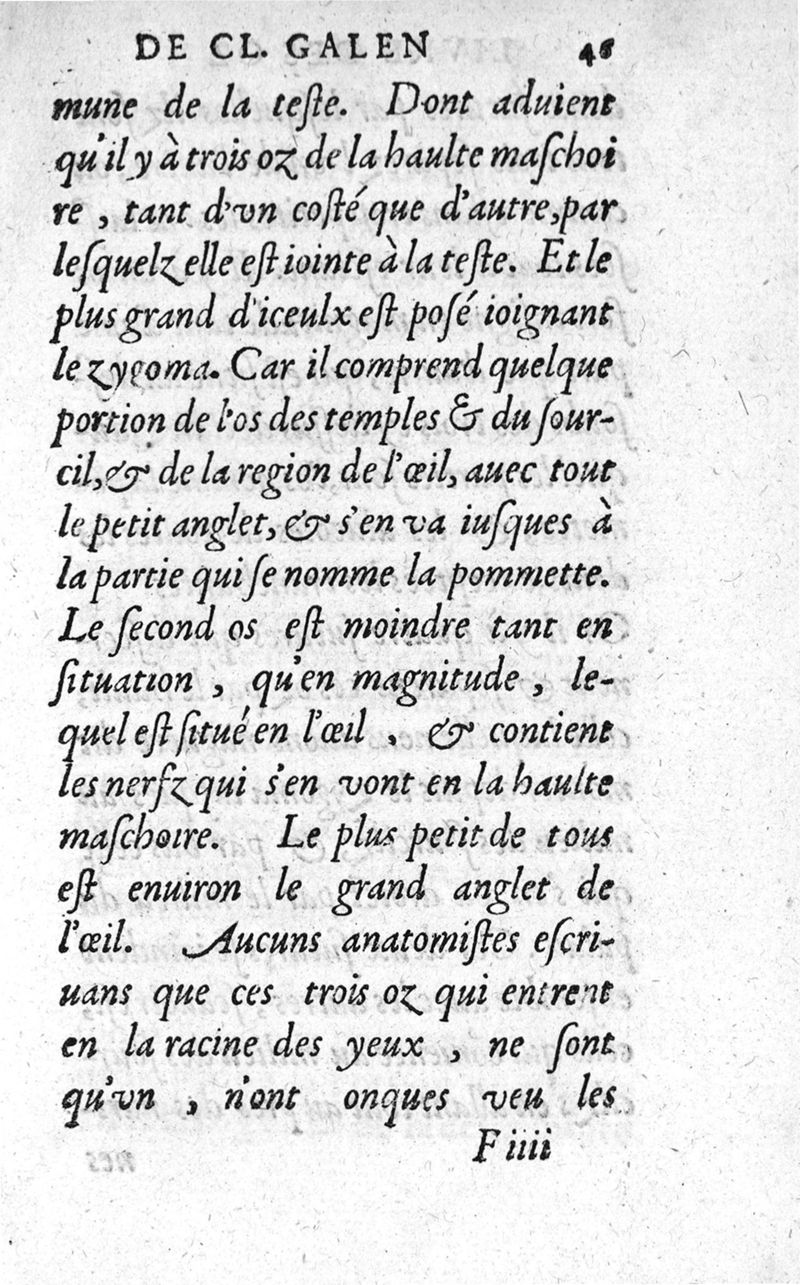 DE CL. GALEN 46
mune de la teſte. Dont aduient
qu'il y à trois oz de la haulte maſchoi
re , tant d'vn coſté que d'autre,par
leſquelz elle eſt iointe à la teſte. Et le
plus grand d'iceulx eſt poſé ioignant
le zygoma. Car il comprend quelque
portion de l'os des temples & du ſour-
cil,& de la region de l'œil, auec tout
le petit anglet, & s'en va iuſques à
la partie qui ſe nomme la pommette.
Le ſecond os eſt moindre tant en
ſituation , qu'en magnitude , le-
quel eſt ſitué en l'œil , & contient
les nerfz qui s'en vont en la haulte
maſchoire. Le plus petit de tous
eſt enuiron le grand anglet de
l'œil. Aucuns anatomiſtes eſcri-
uans que ces trois oz qui entrent
en la racine des yeux , ne ſont
qu'vn , n'ont onques veu les
F iiii